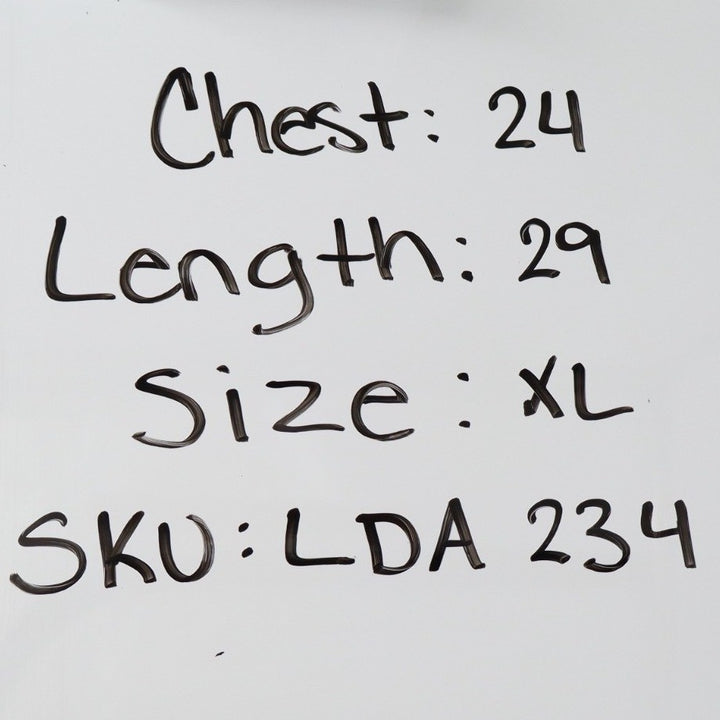 Chest: 24
Length: 29
Size: XL
SKU: LDA 234